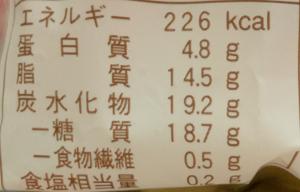 エネルギー 226 kcal
蛋白質 4.8 g
脂質 14.5 g
炭水化物 19.2 g
－糖質 18.7 g
－食物繊維 0.5 g
食塩相当量 0.2 g